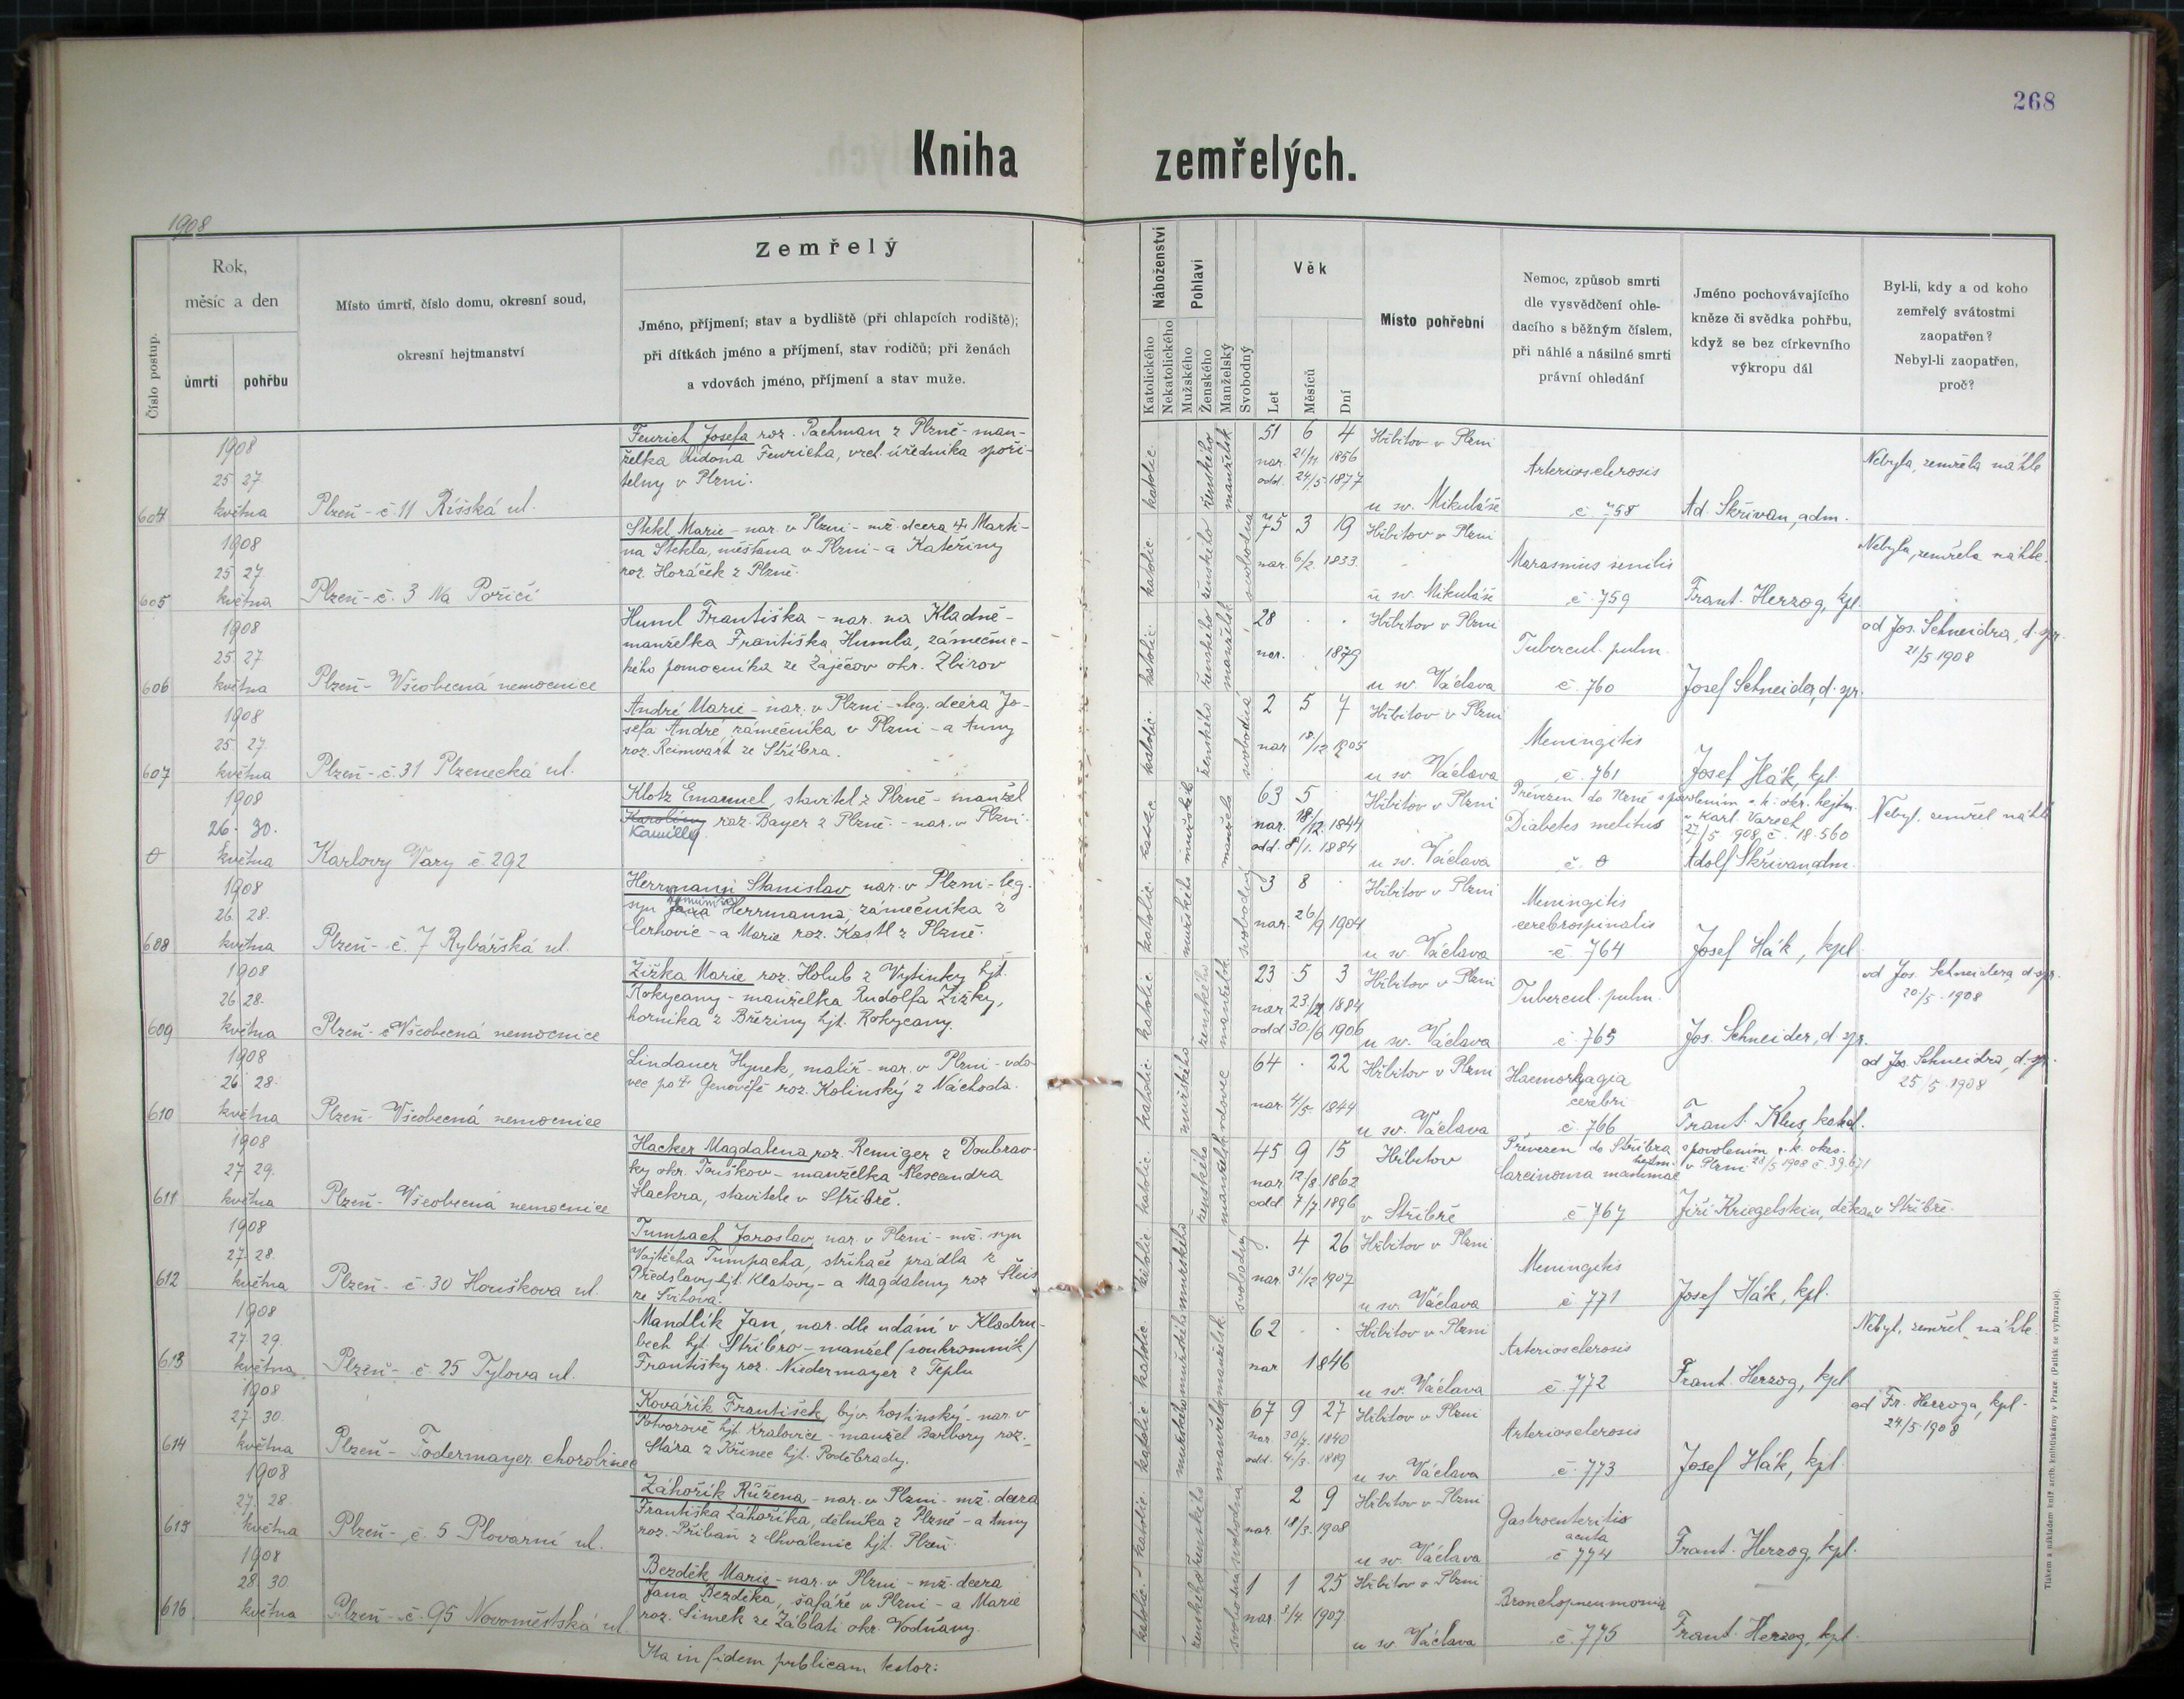 268
Kniha zemřelých.
1908
Číslo postup.
Rok,
měsíc a den
úmrtí
pohřbu
Místo úmrtí, číslo domu, okresní soud,
okresní hejtmanství
Zemřelý
Jméno, příjmení; stav a bydliště (při chlapcích rodiště);
při dítkách jméno a příjmení, stav rodičů; při ženách
a vdovách jméno, příjmení a stav muže.
Náboženství
Katolického
Nekatolického
Pohlaví
Mužského
Ženského
Manželský
Svobodný
Věk
Let
Měsíců
Dní
Místo pohřební
Nemoc, způsob smrti
dle vysvědčení ohle-
dacího s běžným číslem,
při náhlé a násilné smrti
právní ohledání
Jméno pochovávajícího
kněze či svědka pohřbu,
když se bez církevního
výkropu dál
Byl-li, kdy a od koho
zemřelý svátostmi
zaopatřen?
Nebyl-li zaopatřen,
proč?
604
1908
25 27
května
Plzeň - č. 11 Říšská ul.
Fenrich Josefa roz. Pachman z Plzně - man-
želka Quidona Fenricha, vrch. úředníka spoři-
telny v Plzni.
katolic.
ženského
manželsk
51 6 4
nar. 21/11 1856
odd. 24/5 1877
Hřbitov v Plzni
u sv. Mikuláše
Arteriosclerosis
č. 758
Ad. Skřivan, adm.
Nebyla, zemřela náhle
605
1908
25 27
května
Plzeň - č. 3 Na Poříčí
Stekl Marie - nar. v Plzni - mž. dcera † Marti-
na Stekla, měšťana v Plzni - a Kateřiny
roz. Horáček z Plzně.
katolic.
ženského
svobodná
75 3 19
nar. 6/2. 1833.
Hřbitov v Plzni
u sv. Mikuláše
Marasmus senilis
č. 759
Frant. Herzog, kpl.
Nebyla, zemřela náhle.
606
1908
25 27
května
Plzeň - Všeobecná nemocnice
Huml Františka - nar. na Kladně -
manželka Františka Humla, zámečnic-
kého pomocníka ze Zaječov okr. Zbirov
katolic.
ženského
manželsk
28 . .
nar. . 1879
Hřbitov v Plzni
u sv. Václava
Tubercul. pulm.
č. 760
Josef Schneider, d. spr.
od Jos. Schneidra, d. spr.
21/5 1908
607
1908
25 27.
května
Plzeň - č. 31 Plzenecká ul.
André Marie - nar. v Plzni - leg. dcera Jo-
sefa André, zámečníka v Plzni - a Anny
roz. Reimvart ze Stříbra.
katolic.
ženského
svobodná
2 5 7
nar. 18/12 1905
Hřbitov v Plzni
u sv. Václava
Meningitis
č. 761
Josef Hák, kpl.
0
1908
26. 30.
května
Karlovy Vary č. 292
Klotz Emanuel, stavitel z Plzně - manžel
Karolíny roz. Bayer z Plzně. - nar. v Plzni.
Kamilly
mužského
63 5
nar. 18/12 1844
odd. 8/1. 1884
Hřbitov v Plzni
u sv. Václava
Převezen do Plzně s povolením c. k. okr. hejtm.
v Karl. Varech
27/5 908, č. 18.560
Diabetes melitus
č. 0
Adolf Skřivan, adm.
Nebyl, zemřel náhle
608
1908
26. 28.
května
Plzeň - č. 7 Rybářská ul.
Herrmann Stanislav, nar. v Plzni - leg.
syn Jana Herrmanna, zámečníka z
Cerhovic - a Marie roz. Kastl z Plzně.
katolic.
mužského
svobodný
3 8 .
nar. 26/9 1904
Hřbitov v Plzni
u sv. Václava
Meningitis
cerebrospinalis
č. 764
Josef Hák, kpl
609
1908
26 28.
května
Plzeň - Všeobecná nemocnice
Žižka Marie roz. Holub z Vytinky hjt.
Rokycany - manželka Rudolfa Žižky,
horníka z Březiny hjt. Rokycany.
katolic.
ženského
manželsk
23 5 3
nar. 23/12 1884
odd 30/6 1906
Hřbitov v Plzni
u sv. Václava
Tubercul. pulm.
č. 765
Jos. Schneider, d. spr.
od Jos. Schneidera, d. spr.
20./5. 1908
610
1908
26 28.
května
Plzeň - Všeobecná nemocnice
Lindauer Hynek, malíř - nar. v Plzni - vdo-
vec po † Genovéfě roz. Kolinský z Náchoda.
katolic.
mužského
vdovec
64 . 22
nar. 4/5. 1844
Hřbitov v Plzni
u sv. Václava
Haemorhagia
cerebri
č. 766
Frant. Klus, kohd.
od Jos. Schneidra, d. spr.
25/5 1908
611
1908
27 29.
května
Plzeň - Všeobecná nemocnice
Hacker Magdalena, roz. Remiger z Doubrav-
ky okr. Touškov - manželka Alexandra
Hackra, stavitele v Stříbře.
katolic.
ženského
manželsk
45 9 15
nar. 12/8. 1862
odd 7/7 1896
Hřbitov
v Stříbře
Převezen do Stříbra s povolením c. k. okes.
hejtm. v Plzni 28/5 1908 č. 39.671
Carcinoma mammae
č. 767
Jiří Kriegelstein, děkan v Stříbře.
612
1908
27 28.
května
Plzeň - č. 30 Houškova ul.
Tumpach Jaroslav, nar. v Plzni - mž. syn
Vojtěcha Tumpacha, střihače prádla z
Předslavy hjt. Klatovy - a Magdaleny roz Šleis
ze Svihova.
katolic.
mužského
svobodný
. 4 26
nar. 31/12 1907
Hřbitov v Plzni
u sv. Václava
Meningitis
č. 771
Josef Hák, kpl.
613
1908
27 29.
května
Plzeň - č. 25 Tylova ul.
Mandlík Jan, nar. dle udání v Kladru-
bech hjt. Stříbro - manžel (soukromník)
Františky roz. Niedermayer z Teplu
katolic.
mužského
manželsk.
62 . .
nar 1846
Hřbitov v Plzni
u sv. Václava
Arteriosclerosis
č. 772
Frant. Herzog, kpl
Nebyl, zemřel náhle
614
1908
27. 30.
května
Plzeň - Todermayer chorobinec
Kovářík František, býv. hostinský - nar. v
Potvorově hjt. Kralovice - manžel Barbory roz.
Stára z Křinec hjt. Poděbrady.
katolic.
mužského
67 9 27
nar. 30/7. 1840
odd. 4/3. 1889
Hřbitov v Plzni
u sv. Václava
Arteriosclerosis
č. 773
Josef Hák, kpl.
od Fr. Herzoga, kpl.
24/5 1908
615
1908
27. 28.
května
Plzeň - č. 5 Plovární ul.
Záhořík Růžena - nar. v Plzni - mž. dcera
Františka Záhoříka, dělníka z Plzně - a Anny
roz. Přibáň z Chválenic hjt. Plzeň.
katolic.
ženského
svobodná
2 9
nar. 18/3. 1908
Hřbitov v Plzni
u sv. Václava
Gastroenteritis
acuta
č. 774
Frant. Herzog, kpl.
616
1908
28 30.
května
Plzeň - č. 95 Novoměstská ul
Bezděk Marie - nar. v Plzni - mž. dcera
Jana Bezděka, šafáře v Plzni - a Marie
roz. Šimek ze Záblatí okr. Vodňany.
katolic.
ženského
svobodná
1 1 25
nar. 3/4. 1907.
Hřbitov v Plzni
u sv. Václava
Bronchopneumonia
č. 775
Frant. Herzog, kpl.
Ita in fidem publicam testor:
Tiskem a nákladem knihtiskárny v Praze. (Patisk se vyhrazuje).